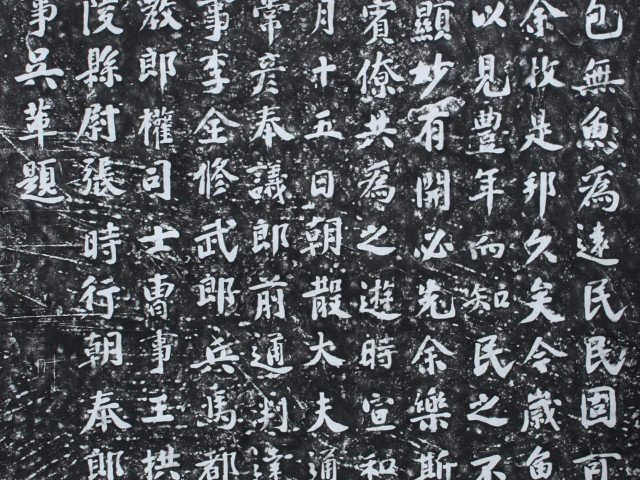 包無魚爲遠民民固可
余牧是邦久矣今歲魚
以見豐年而知民之不
顯妙有開必先余樂斯
賓僚共爲之遊時宣和
月十五日朝散大夫通
常彥奉議郎前通判達
事李全修武郎兵馬都
教郎權司士曹事王拱
陵縣尉張時行朝奉郎
事吳革題